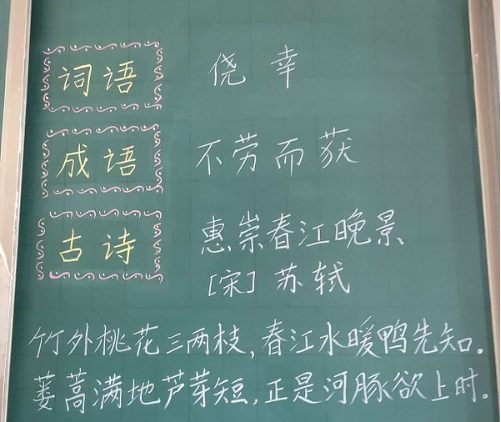 词语 侥幸
成语 不劳而获
古诗 惠崇春江晚景
[宋] 苏轼
竹外桃花三两枝，春江水暖鸭先知。
蒌蒿满地芦芽短，正是河豚欲上时。